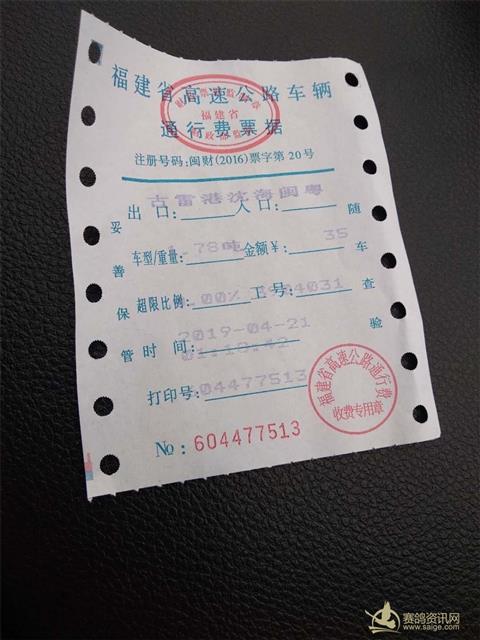 福建省高速公路车辆
通行费票据
福建省
注册号码:闽财(2016)票字第20号
古雷港沈海闽粤
出口: 入口:
车型/重量: 1.78吨 金额¥: 35
超限比例: .00% 工号: 3904031
2019-04-21
时间:
01:18:42
打印号: 604477513
No: 604477513
妥善保管
随车查验
福建省高速公路通行费
收费专用章
赛鸽资讯网
www.saige.com